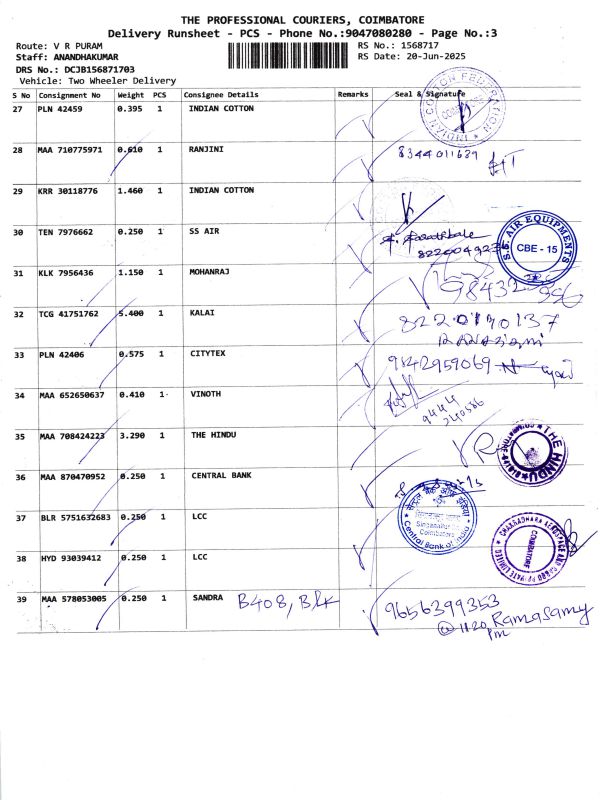 THE PROFESSIONAL COURIERS, COIMBATORE
Delivery Runsheet - PCS - Phone No.:9047080280 - Page No.:3
Route: V R PURAM
RS No.: 1568717
Staff: ANANDHAKUMAR
RS Date: 20-Jun-2025
DRS No.: DCJB156871703
Vehicle: Two Wheeler Delivery
S No Consignment No Weight PCS Consignee Details Remarks Seal & Signature
27 PLN 42459 0.395 1 INDIAN COTTON
INDIAN COTTON FEDERATION
28 MAA 710775971 0.610 1 RANJINI
8344011639
29 KRR 30118776 1.460 1 INDIAN COTTON
30 TEN 7976662 0.250 1 SS AIR
S.S. AIR EQUIPMENTS
CBE - 15
31 KLK 7956436 1.150 1 MOHANRAJ
32 TCG 41751762 5.400 1 KALAI
8220170137
33 PLN 42406 0.575 1 CITYTEX
9842959069
34 MAA 652650637 0.410 1 VINOTH
9444
240586
35 MAA 708424223 3.290 1 THE HINDU
THE HINDU
36 MAA 870470952 0.250 1 CENTRAL BANK
सेन्ट्रल बैंक ऑफ इंडिया
Coimbatore
Central Bank of India
37 BLR 5751632683 0.250 1 LCC
CHAKRADHARA AEROSPACE AND CARGO PRIVATE LIMITED
COIMBATORE
38 HYD 93039412 0.250 1 LCC
39 MAA 578053005 0.250 1 SANDRA B408, Blk 9656399353
@ 11.20 Ramasamy
pm